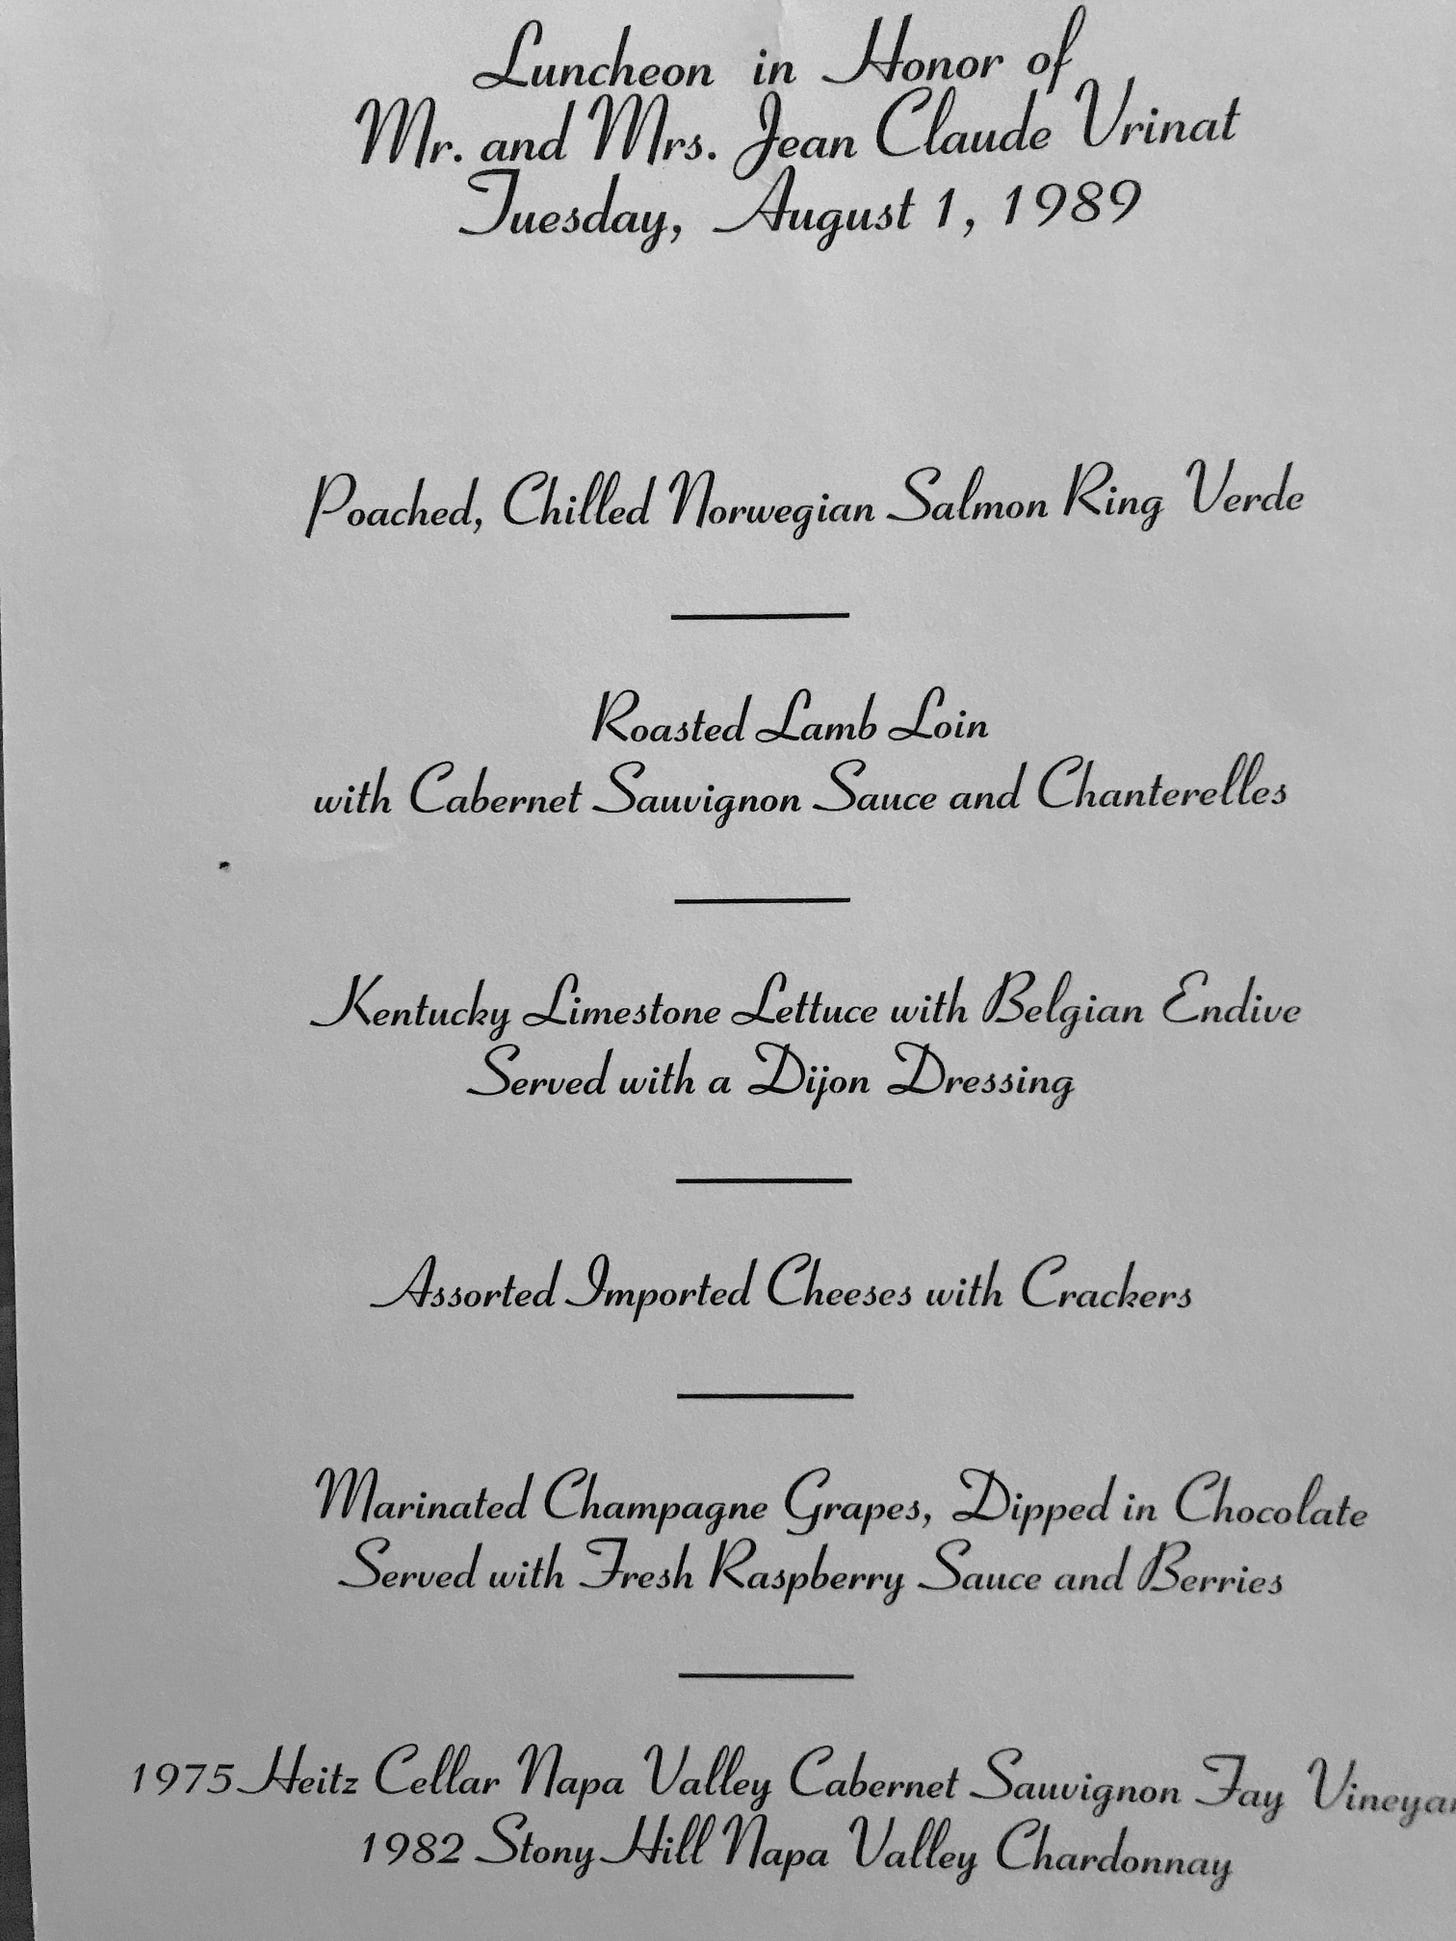 Luncheon in Honor of
Mr. and Mrs. Jean Claude Vrinat
Tuesday, August 1, 1989
Poached, Chilled Norwegian Salmon Ring Verde
Roasted Lamb Loin
with Cabernet Sauvignon Sauce and Chanterelles
Kentucky Limestone Lettuce with Belgian Endive
Served with a Dijon Dressing
Assorted Imported Cheeses with Crackers
Marinated Champagne Grapes, Dipped in Chocolate
Served with Fresh Raspberry Sauce and Berries
1975 Heitz Cellar Napa Valley Cabernet Sauvignon Fay
1982 Stony Hill Napa Valley Chardonnay